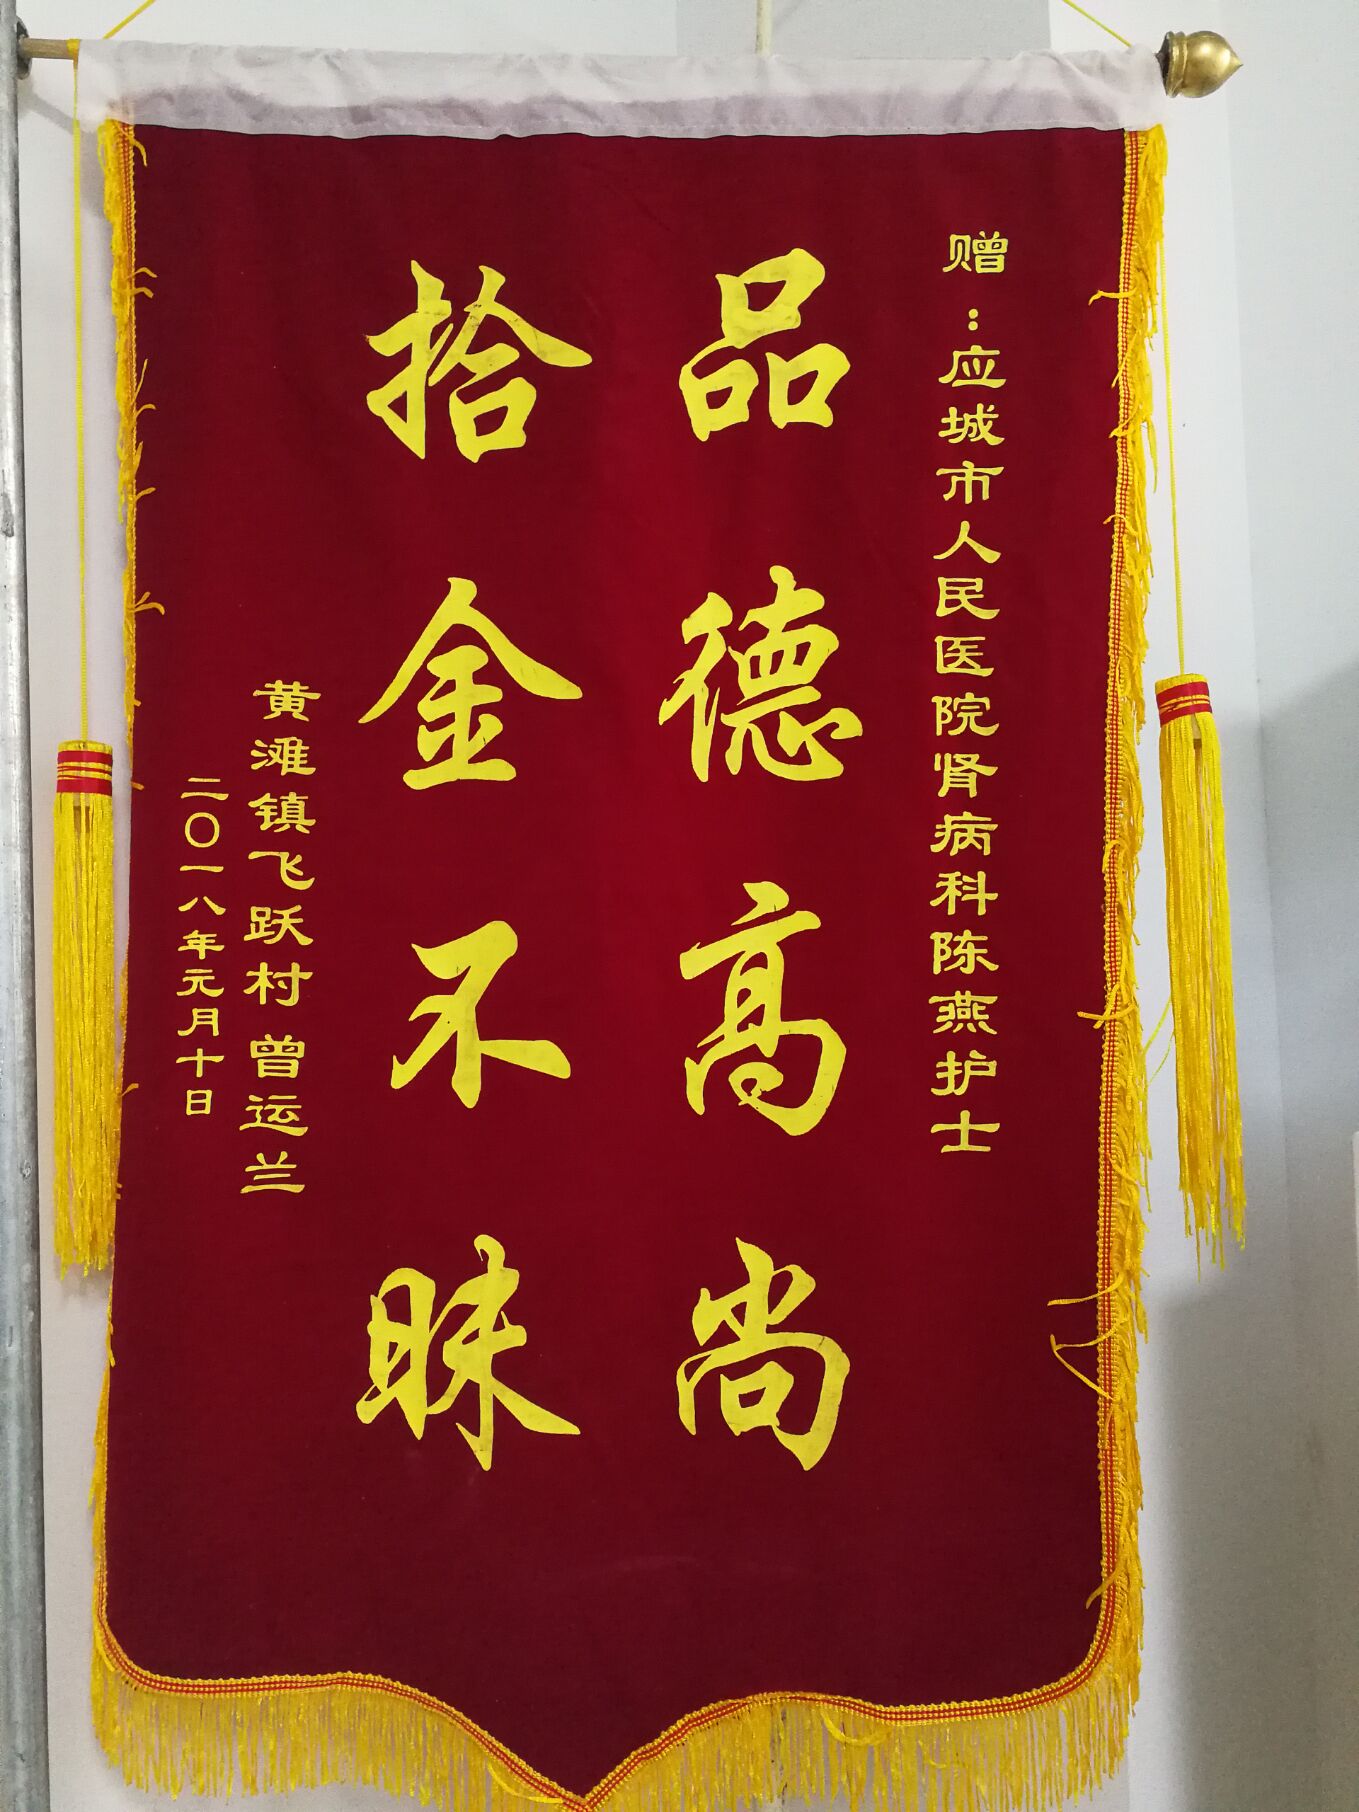 赠：应城市人民医院肾病科陈燕护士
品德高尚
拾金不昧
黄滩镇飞跃村曾运兰
二〇一八年元月十日